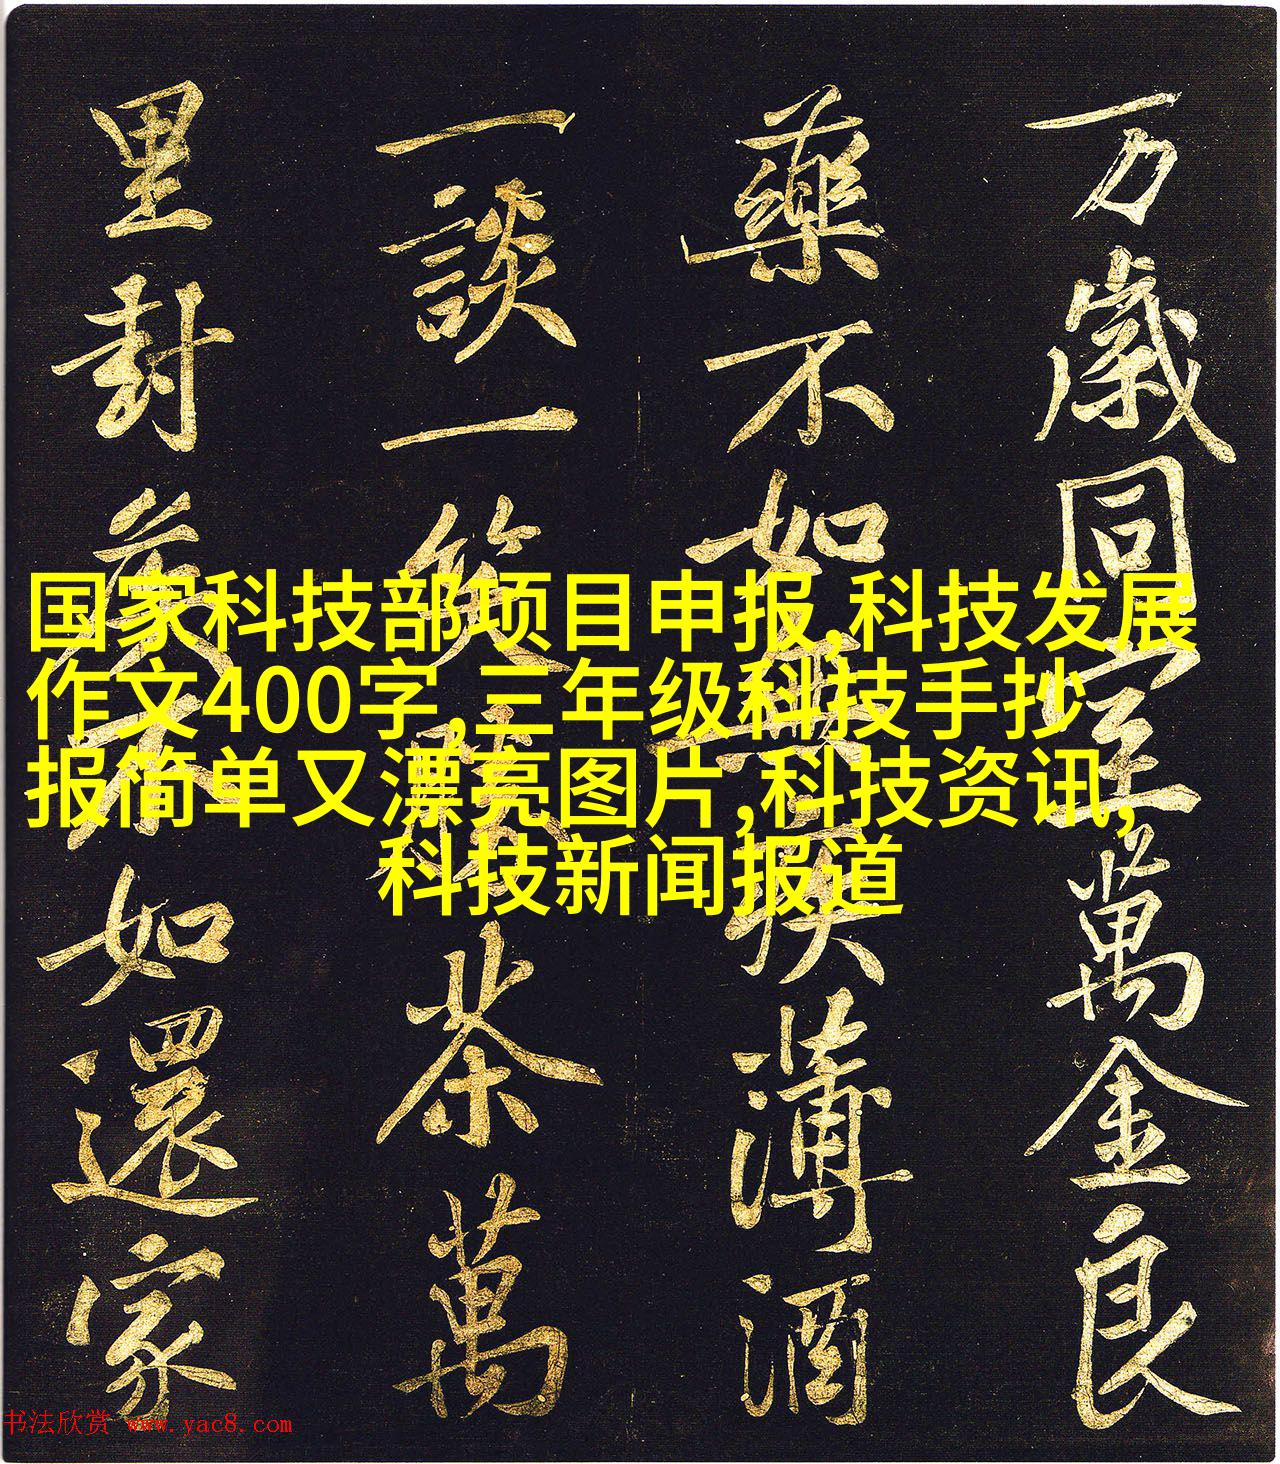 万歲同室萬金良
藥不如無疾薄酒
一談一笑勝茶萬
里封侯不如還家
国家科技部项目申报,科技发展
作文400字,三年级科技手抄
报简单又漂亮图片,科技资讯,
科技新闻报道
书法欣赏 www.yac8.com